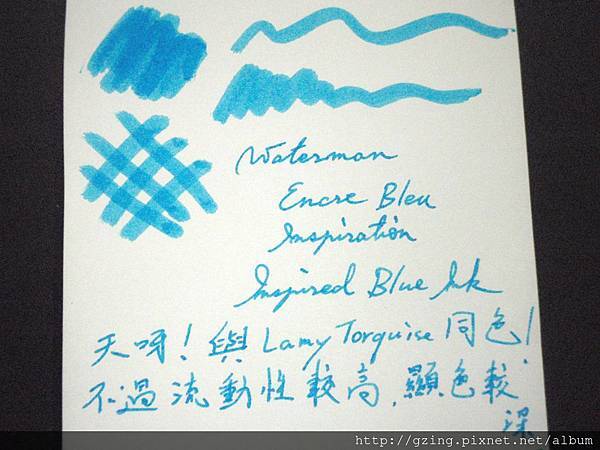 Waterman
Encre Bleu
Inspiration
Inspired Blue Ink
天呀！與Lamy Torquise同色！
不過流動性較高，顯色較
深
http://gzing.pixnet.net/album